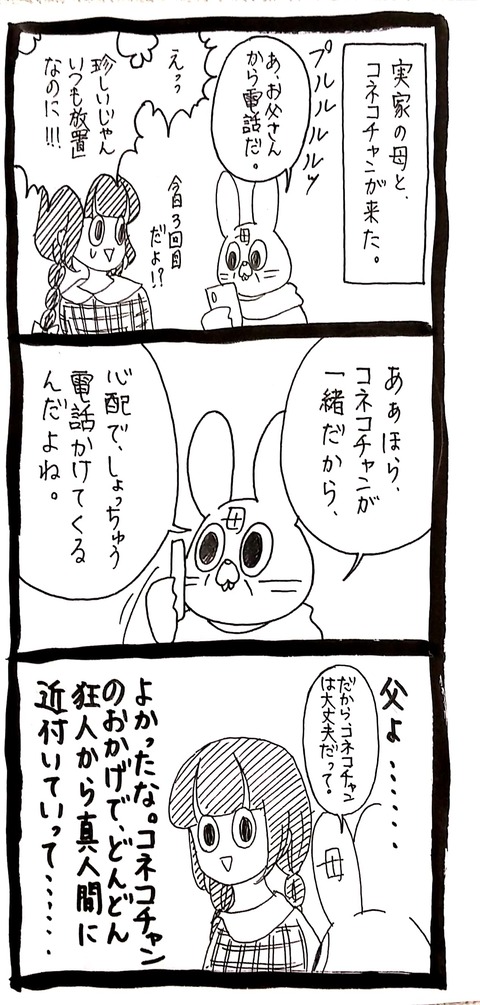 実家の母と、
コネコチャンが来た。
プルルルルッ
あ、お父さん
から電話だ。
えっっ
珍しいじゃん
いつも放置
なのに!!!
今日3回目
だよ!?
母
あぁほら、
コネコチャンが
一緒だから、
母
心配で、しょっちゅう
電話かけてくる
んだよね。
父よ……
だから、コネコチャン
は大丈夫だって。
母
よかったな。コネコチャン
のおかげで、どんどん
狂人から真人間に
近付いていって……